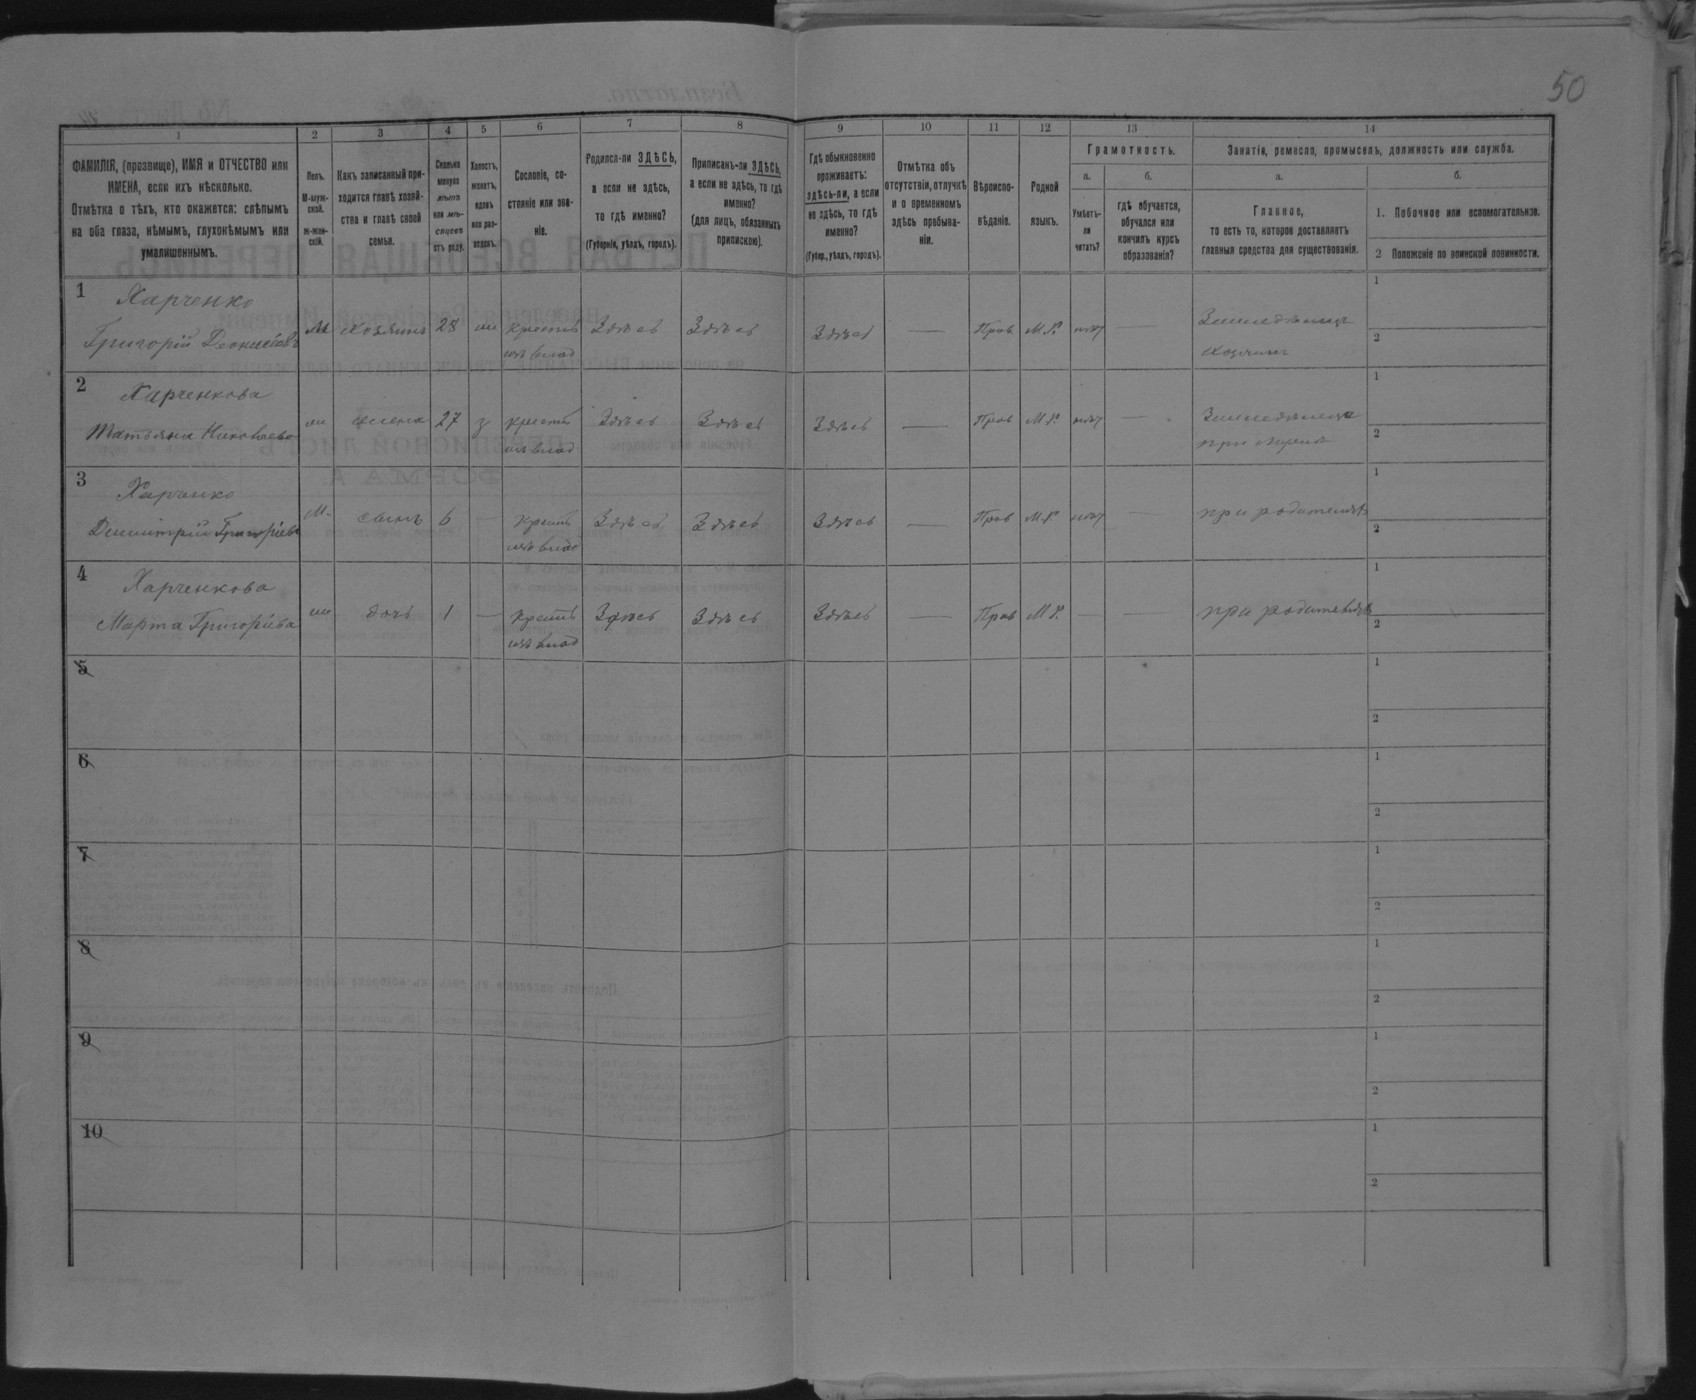 50
1 2 3 4 5 6 7 8 9 10 11 12 13 14
ФАМИЛІЯ, (прозвище), ИМЯ и ОТЧЕСТВО или
ИМЕНА, если ихъ нѣсколько.
Отмѣтка о тѣхъ, кто окажется: слѣпымъ
на оба глаза, нѣмымъ, глухонѣмымъ или
умалишеннымъ.
Полъ.
М-муж-
ской.
ж-жен-
скій.
Какъ записанный при-
ходится главѣ хозяй-
ства и главѣ своей
семьи.
Сколько
минуло
лѣтъ
или мѣ-
сяцевъ
отъ роду.
Холостъ,
женатъ,
вдовъ
или раз-
веденъ.
Сословіе, со-
стояніе или зва-
ніе.
Родился-ли ЗДѢСЬ,
а если не здѣсь,
то гдѣ именно?
(Губернія, уѣздъ, городъ).
Приписанъ-ли ЗДѢСЬ,
а если не здѣсь, то гдѣ
именно?
(для лицъ, обязанныхъ
припискою).
Гдѣ обыкновенно
проживаетъ:
здѣсь-ли, а если
не здѣсь, то гдѣ
именно?
(Губер., уѣздъ, городъ).
Отмѣтка объ
отсутствіи, отлучкѣ
и о временномъ
здѣсь пребыва-
ніи.
Вѣроиспо-
вѣданіе.
Родной
языкъ.
Грамотность.
а.
Умѣетъ-
ли
читать?
б.
гдѣ обучается,
обучался или
кончилъ курсъ
образованія?
Занятія, ремесло, промыселъ, должность или служба.
а.
Главное,
то есть то, которое доставляетъ
главныя средства для существованія.
б.
1. Побочное или вспомогательное.
2 Положеніе по воинской повинности.
1 Харченко
Григорій Деонисіевъ М хозяинъ 28 ж крестъ Здѣсь Здѣсь Здѣсь — Прав М.Р. нѣт — Земледѣлецъ 1
изъ влад хозяинъ 2
2 Харченкова
Татьяна Николаева ж жена 27 з крестъ Здѣсь Здѣсь Здѣсь — Прав М.Р. нѣт — 1
изъ влад при мужѣ 2
3 Харченко
Димитрій Григоріевъ М. сынъ 6 — крестъ Здѣсь Здѣсь Здѣсь — Прав М.Р. нѣт — при родителяхъ 1
изъ влад 2
4 Харченкова
Марта Григоріева ж дочь 1 — крестъ Здѣсь Здѣсь Здѣсь — Прав М.Р. — — при родителяхъ 1
изъ влад 2
5 1
2
6 1
2
7 1
2
8 1
2
9 1
2
10 1
2